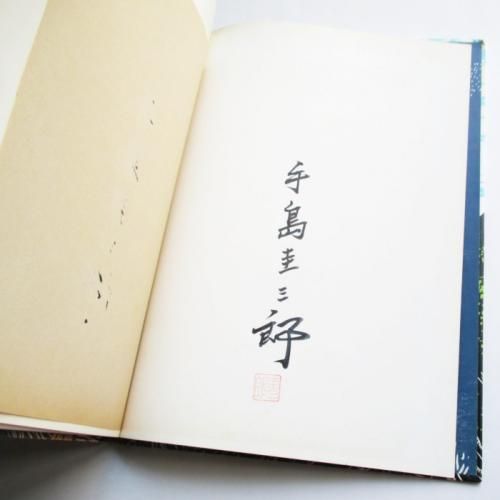 手島圭三郎